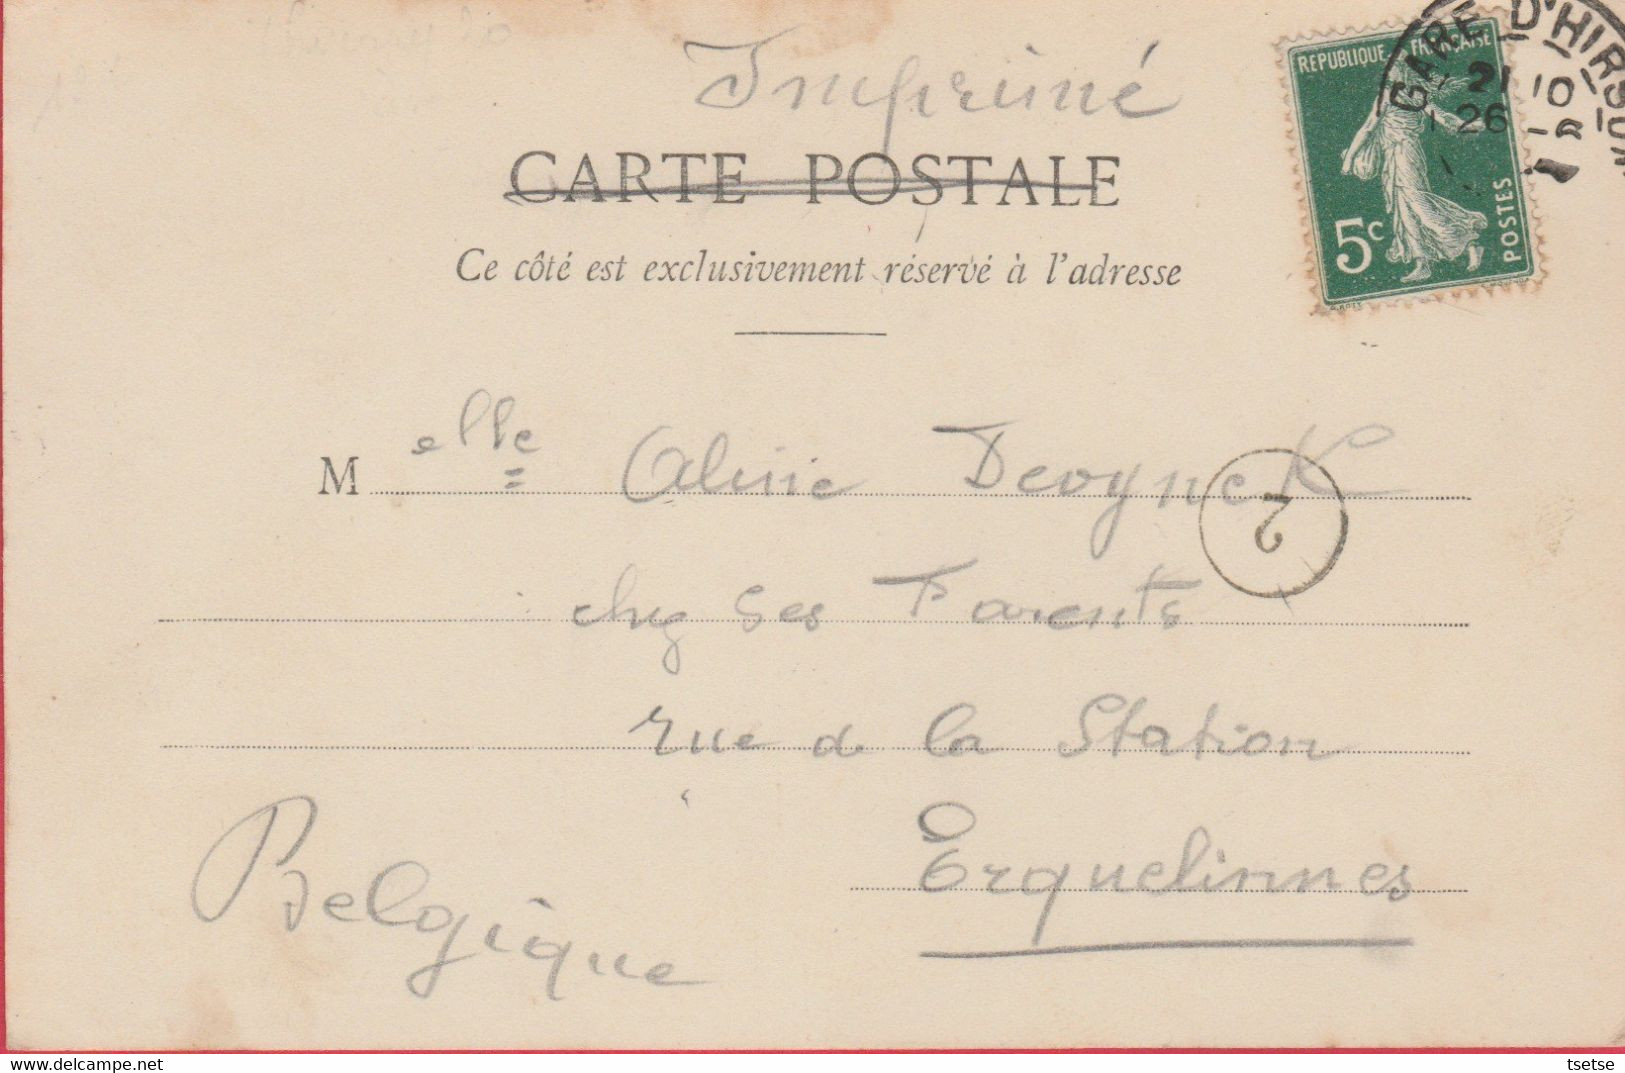 Imprimé
CARTE POSTALE
Ce côté est exclusivement réservé à l'adresse
REPUBLIQUE FRANÇAISE
5c
POSTES
GARE D'HIRSON
21 10
26
2
M elle Aline Deoynck
chez ses Parents
rue de la Station
Erquelinnes
Belgique
www.delcampe.net
tsetse